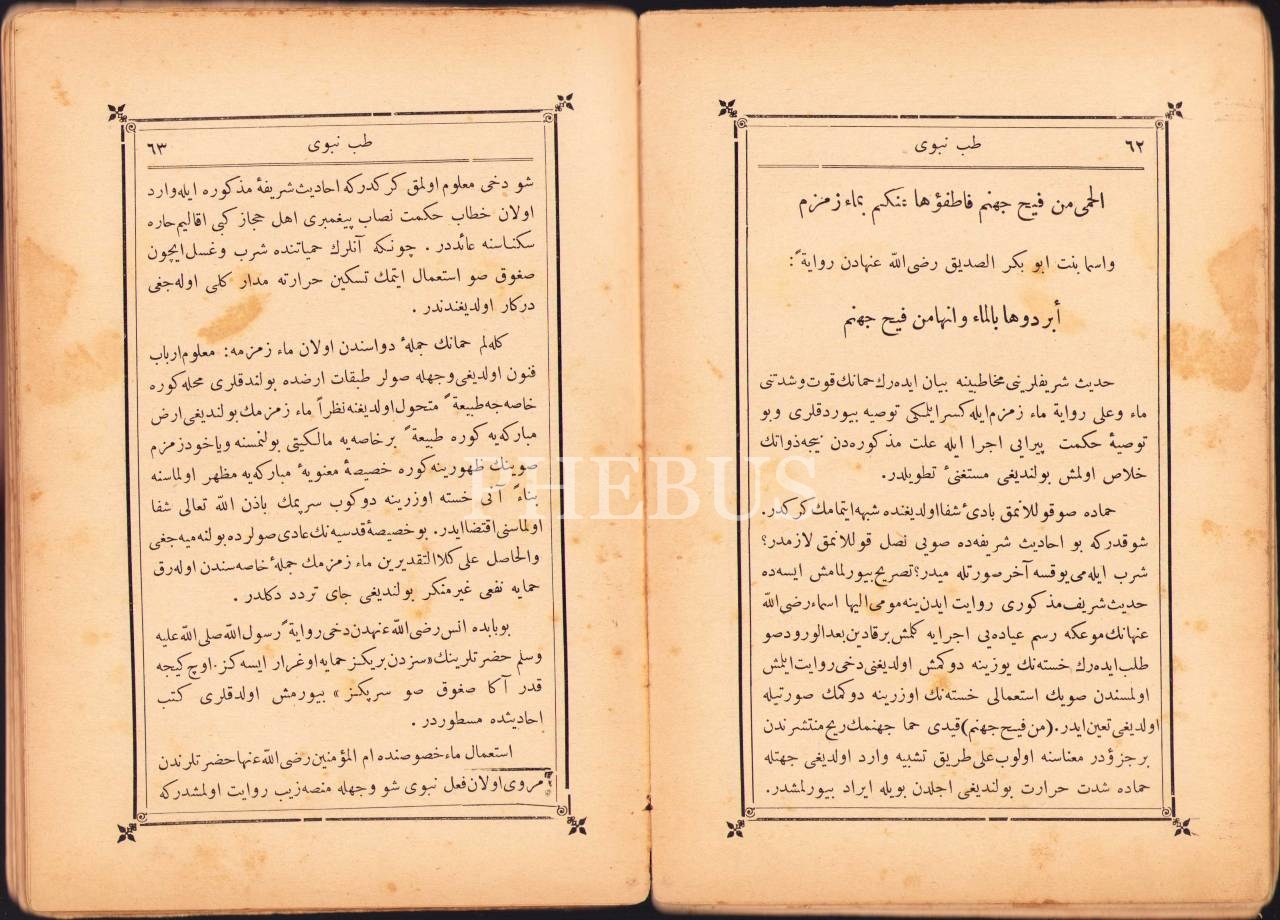 ٦٢
طب نبوی
الحمى من فيح جهنم فاطفؤها عنكم بماء زمزم
واسما بنت ابو بكر الصديق رضی الله عنهادن رواية ً:
أبردوها بالماء وانهامن فيح جهنم
حديث شريفلرينی مخاطبينه بيان ايده رك حمانك قوت وشدتنی
ماء وعلی رواية ماء زمزم ايله كسر ايلمكی توصيه بيوردقلری وبو
توصيۀ حكمت پيرايی اجرا ايله علت مذكوره دن نيجه ذواتك
خلاص اولمش بولنديغی مستغنیٔ تطويلدر.
حماده صو قوللانمق بادیٔ شفا اولديغنده شبهه ايتمامك كركدر.
شو قدركه بو احاديث شريفه ده صويی نصل قوللانمق لازمدر؟
شرب ايله می يوقسه آخر صورتله ميدر؟ تصريح بيورلمامش ايسه ده
حديث شريف مذكوری روايت ايدن ينه مومی اليها اسماء رضی الله
عنهانك موعكه رسم عياده يی اجرايه كلمش برقادين بعد الورود صو
طلب ايده رك خسته نك يوزينه دوكمش اولديغنی دخی روايت ايلمش
اولمسندن صويك استعمالی خسته نك اوزرينه دوكمك صورتيله
اولديغی تعين ايدر. (من فيح جهنم) قيدی حما جهنمك ريح منتشرندن
برجزؤدر معناسنه اولوب علی طريق تشبيه وارد اولديغی جهتله
حماده شدت حرارت بولنديغی اجلدن بويله ايراد بيورلمشدر.
طب نبوی
٦٣
شو دخی معلوم اولمق كركدركه احاديث شريفۀ مذكوره ايله وارد
اولان خطاب حكمت نصاب پيغمبری اهل حجاز كبی اقاليم حاره
سكناسنه عائددر . چونكه آنلرك حمياتنده شرب وغسل ايچون
صغوق صو استعمال ايتمك تسكين حرارته مدار كلی اوله جغی
دركار اولديغندندر .
كله لم حمانك جملۀ دواسندن اولان ماء زمزمه: معلوم ارباب
فنون اولديغی وجهله صولر طبقات ارضده بولندقلری محله كوره
خاصه جه طبيعة ً متحول اولديغنه نظراً ماء زمزمك بولنديغی ارض
مباركه يه كوره طبيعة ً برخاصه يه مالكيتی بولنمسنه وياخود زمزم
صوينك ظهورينه كوره خصيصۀ معنويۀ مباركه يه مظهر اولماسنه
بناءً آنی خسته اوزرينه دوكوب سرپمك باذن الله تعالی شفا
اولماسنی اقتضا ايدر. بو خصيصۀ قدسيه نك عادی صولرده بولنه ميه جغی
والحاصل علی كلا التقديرين ماء زمزمك جملۀ خاصه سندن اوله رق
حمايه نفعی غير منكر بولنديغی جای تردد دكلدر .
بوبابده انس رضی الله عنهدن دخی رواية ً رسول الله صلی الله عليه
وسلم حضرتلرينك «سزدن بريكز حمايه اوغرار ايسه كز. اوچ كيجه
قدر آكا صغوق صو سرپكز » بيورمش اولدقلری كتب
احاديثده مسطوردر .
استعمال ماء خصوصنده ام المؤمنين رضی الله عنها حضرتلرندن
مروی اولان فعل نبوی شو وجهله منصه زيب روايت اولمشدركه
PHEBUS